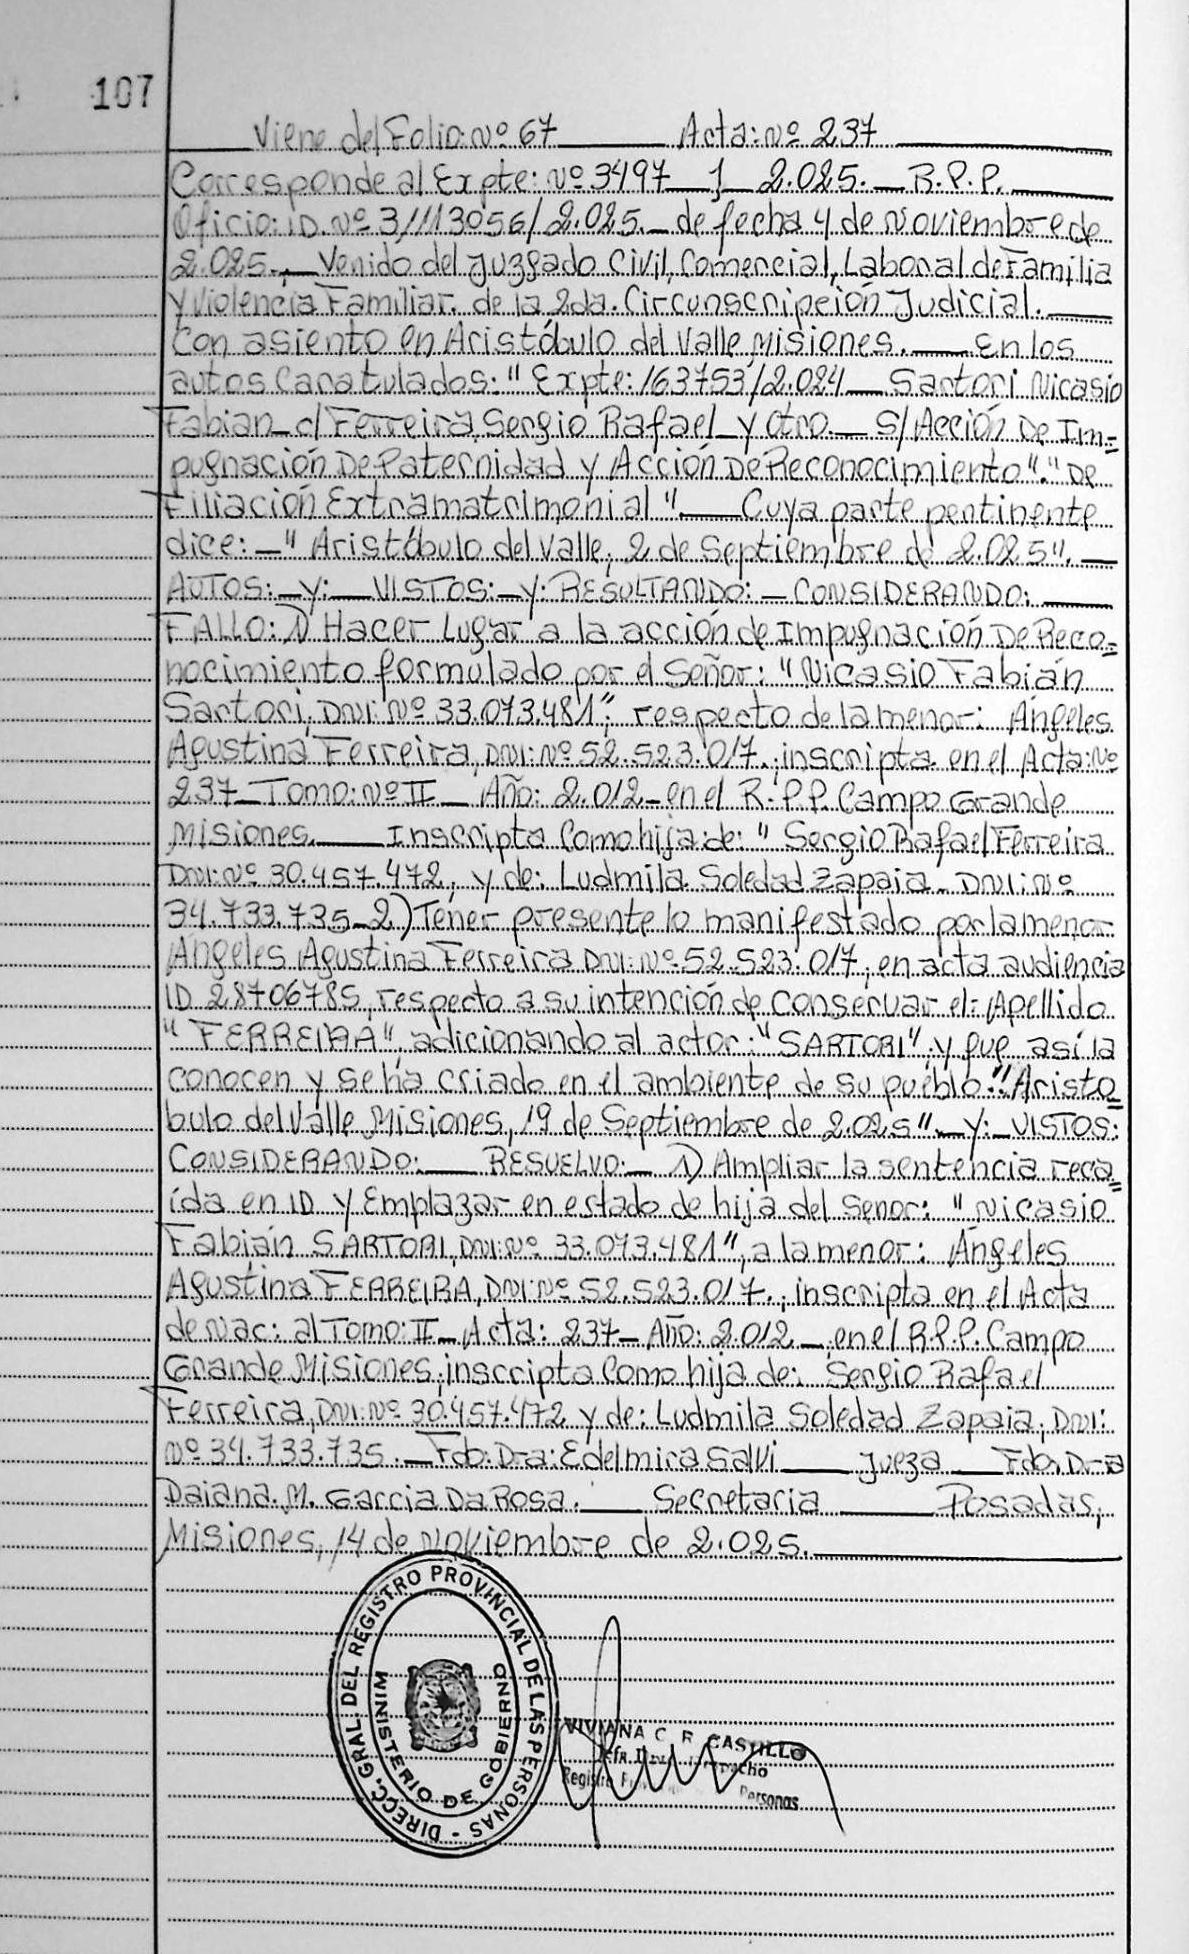 107
Viene del Folio: Nº 67 Acta: Nº 237
Corresponde al Expte: Nº 3497 / 2.025. R.P.P.
Oficio: ID. Nº 3/1113056/2.025. de fecha 4 de Noviembre de
2.025. Venido del Juzgado Civil, Comercial, Laboral de Familia
y Violencia Familiar. de la 2da. Circunscripción Judicial.
con asiento en Aristóbulo del Valle Misiones. En los
autos Caratulados: " Expte: 163753/2.024 Sartori Nicasio
Fabian c/ Ferreira Sergio Rafael y Otro. S/ Acción De Im=
pugnación De Paternidad y Acción De Reconocimiento"." De
Filiación Extramatrimonial ". Cuya parte pertinente
dice: " Aristóbulo del Valle, 2 de Septiembre de 2.025".
AUTOS: y: VISTOS: y: RESULTANDO: CONSIDERANDO:
FALLO: 1) Hacer Lugar a la acción de Impugnación De Reco=
nocimiento formulado por el Señor: "Nicasio Fabián
Sartori, DNI: Nº 33.073.481", respecto de la menor: Ángeles
Agustina Ferreira, DNI: Nº 52.523.017., inscripta en el Acta: Nº
237 Tomo: Nº II Año: 2.012 en el R.P.P. Campo Grande
Misiones. Inscripta Como hija de: " Sergio Rafael Ferreira
DNI: Nº 30.457.472, y de: Ludmila Soledad Zapaia DNI: Nº
34.733.735 2) Tener presente lo manifestado por la menor
Ángeles Agustina Ferreira DNI: Nº 52.523.017, en acta audiencia
ID 28706785, respecto a su intención de conservar el: Apellido
" FERREIRA", adicionando al actor: "SARTORI" y que así la
conocen y se ha criado en el ambiente de su pueblo." Aristo=
bulo del Valle Misiones, 19 de Septiembre de 2.025". y: VISTOS:
CONSIDERANDO: RESUELVO: 1) Ampliar la sentencia reca=
ída en ID y Emplazar en estado de hija del Senor: " Nicasio
Fabián SARTORI, DNI: Nº 33.073.481", a la menor: Ángeles
Agustina FERREIRA, DNI: Nº 52.523.017., inscripta en el Acta
de Nac: al Tomo: II Acta: 237 Año: 2.012 en el R.P.P. Campo
Grande Misiones, inscripta Como hija de: Sergio Rafael
Ferreira, DNI: Nº 30.457.472 y de: Ludmila Soledad Zapaia, DNI:
Nº 34.733.735. Fdo: Dra: Edelmira Salvi Jueza Fdo. Dra
Daiana. M. Garcia Da Rosa. Secretaria Posadas,
Misiones, 14 de Noviembre de 2.025.
DIRECC. GRAL. DEL REGISTRO PROVINCIAL DE LAS PERSONAS
MINISTERIO DE GOBIERNO
VIVIANA C. R. CASTILLO
Registro Personas